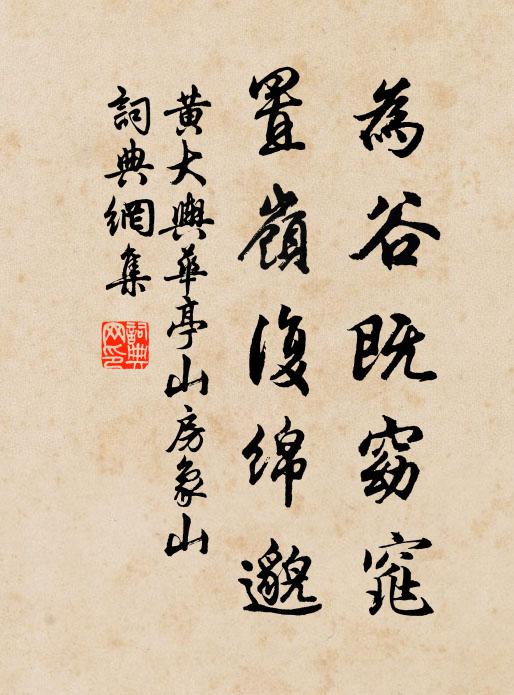 為谷既窈窕
置嶺復綿邈
黃大輿華亭山房象山
詞典網集
詞典網印